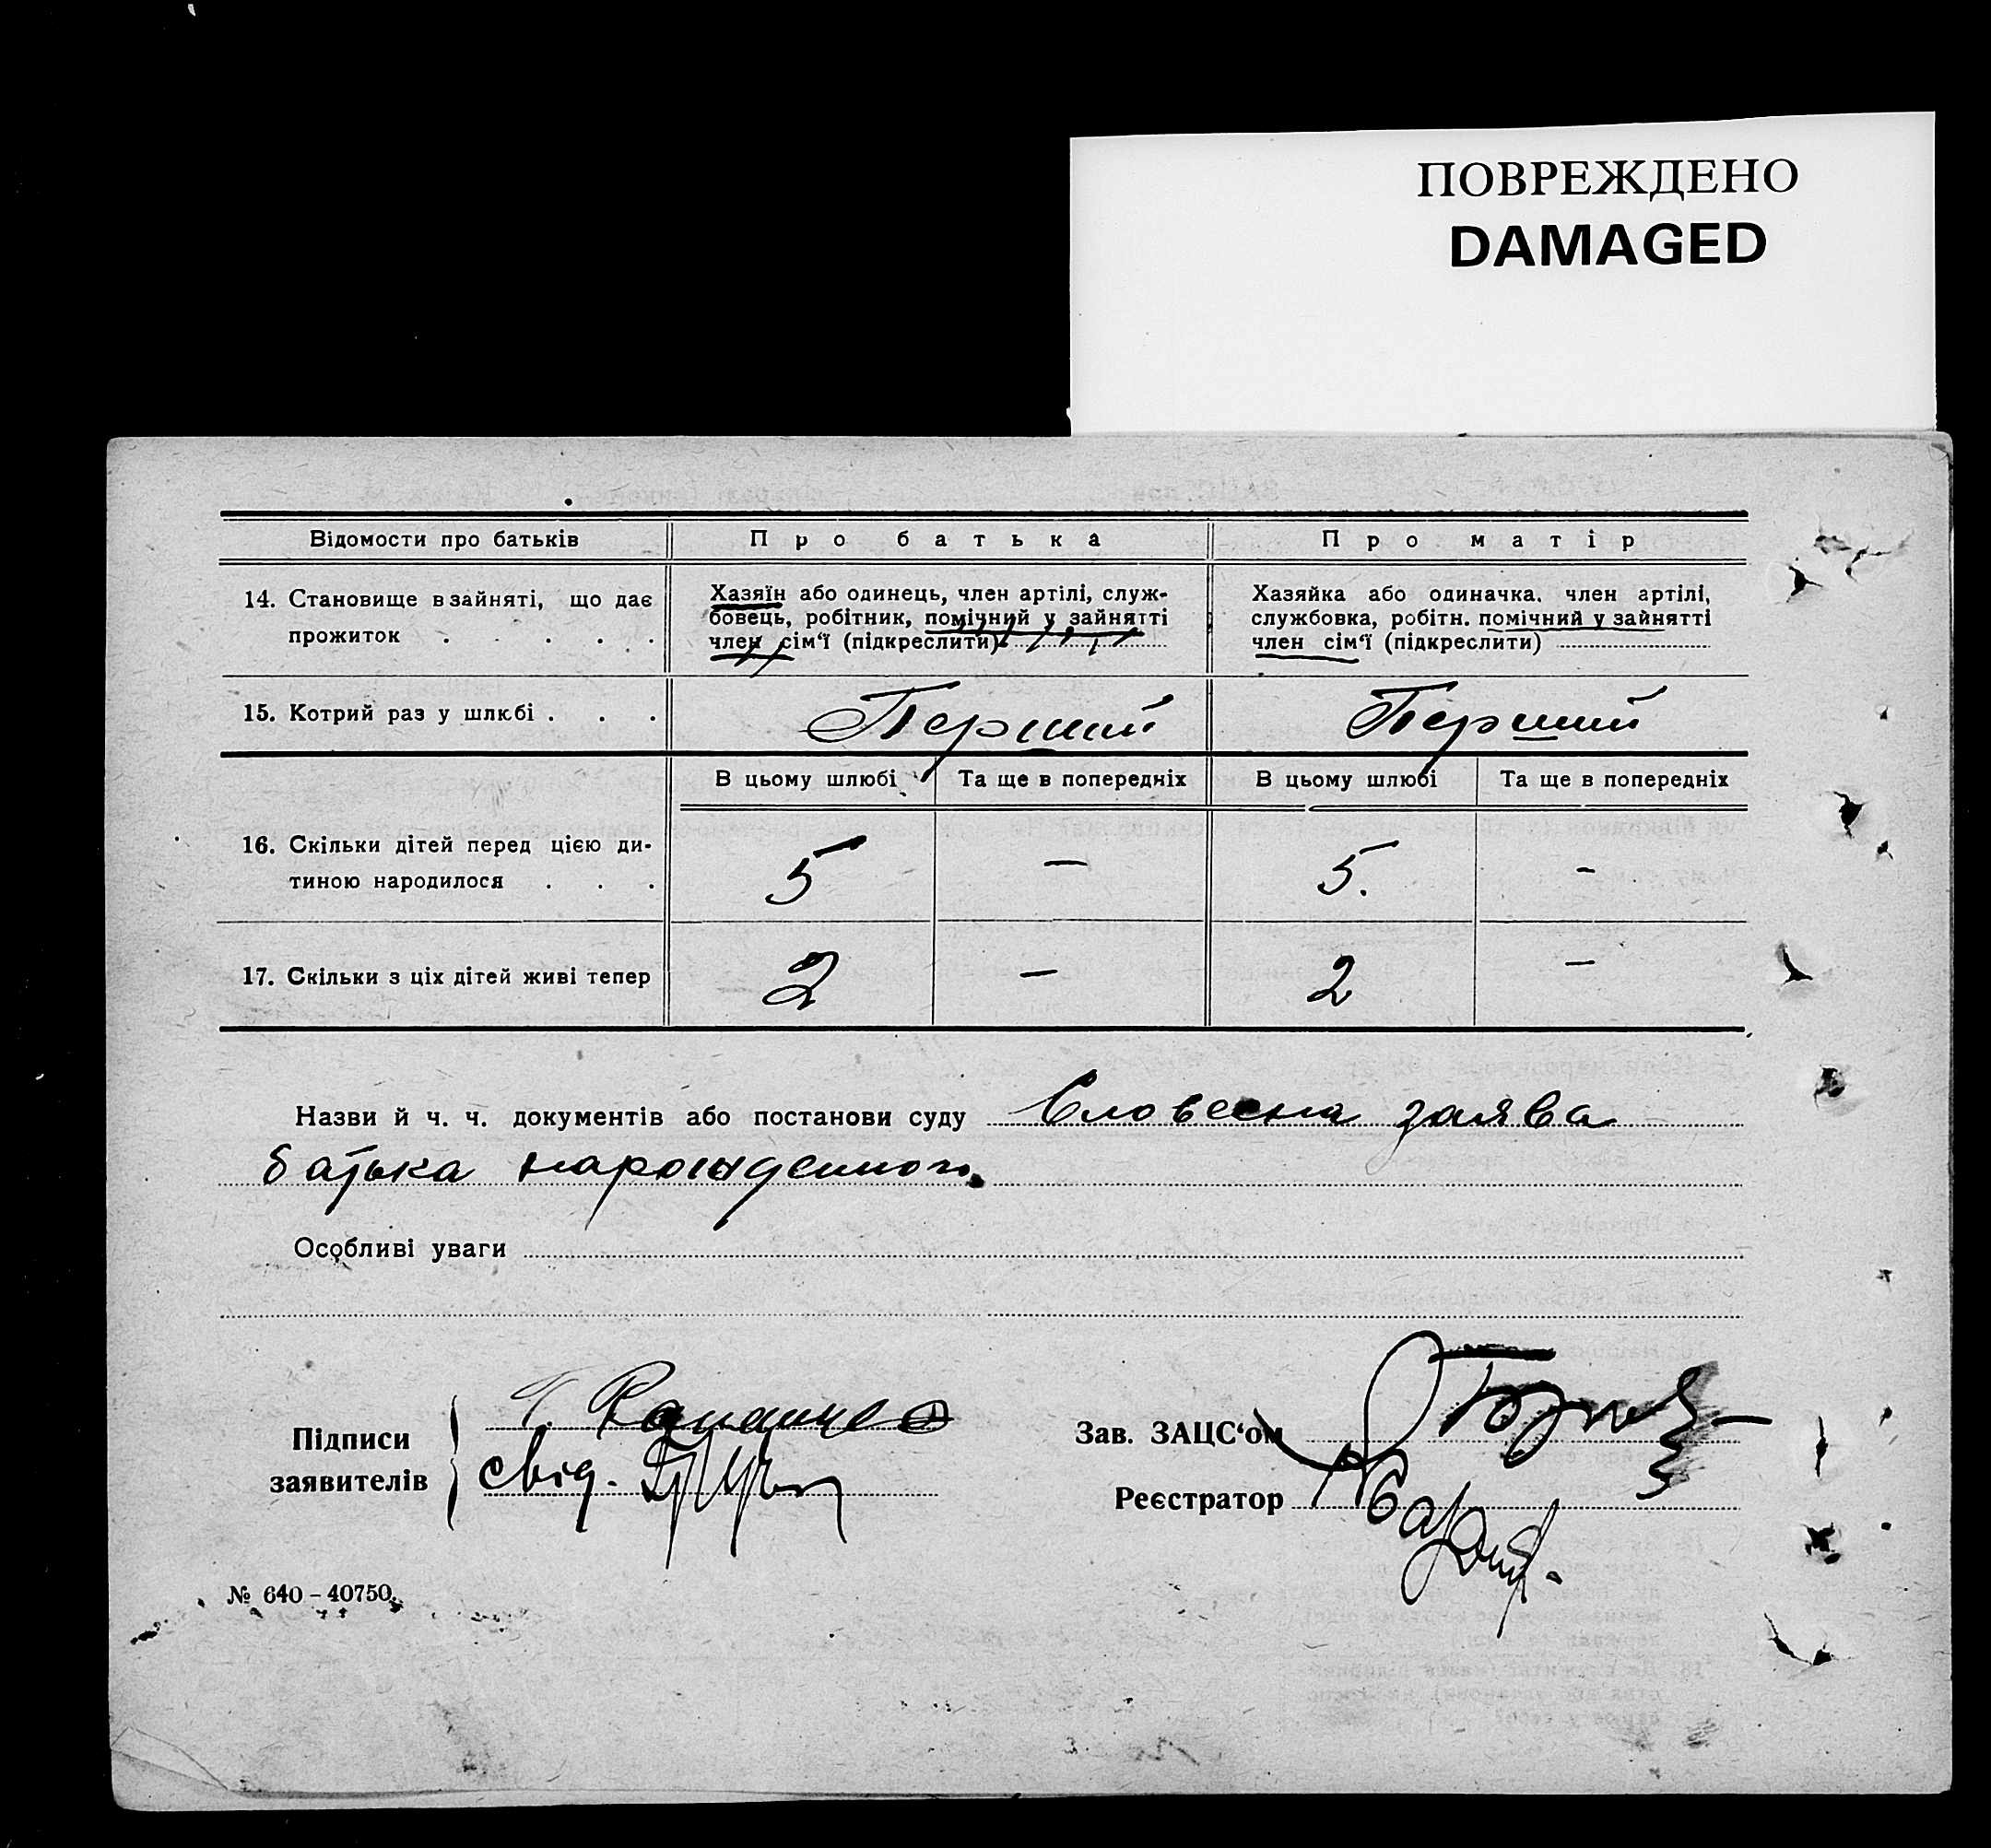 ПОВРЕЖДЕНО
DAMAGED
Відомости про батьків
Про батька
Про матір
14. Становище в зайняті, що дає
прожиток . . . .
Хазяїн або одинець, член артілі, служ-
бовець, робітник, помічний у зайнятті
член сім‘ї (підкреслити)
Хазяйка або одиначка, член артілі,
службовка, робітн. помічний у зайнятті
член сім‘ї (підкреслити)
15. Котрий раз у шлюбі . . .
Перший
Перший
В цьому шлюбі
Та ще в попередніх
В цьому шлюбі
Та ще в попередніх
16. Скільки дітей перед цією ди-
тиною народилося . . .
5
—
5.
-
17. Скільки з ціх дітей живі тепер
2
—
2
—
Назви й ч. ч. документів або постанови суду Словесна заява
батька народженого.
Особливі уваги
Підписи
заявителів
свід.
Зав. ЗАЦС‘ом
Реєстратор
№ 640 – 40750.